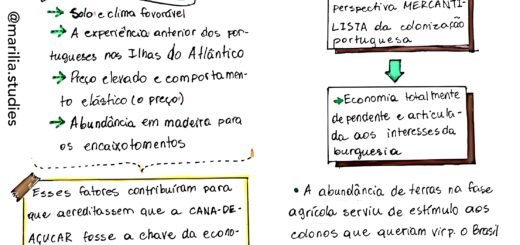 @marilia.studies
→ Solo e clima favorável
→ A experiência anterior dos por-
tugueses nas Ilhas do Atlântico
→ Preço elevado e comportamen-
to elástico (o preço)
→ Abundância em madeira para
os encaixotamentos
Esses fatores contribuíram para
que acreditassem que a CANA-DE-
AÇUCAR fosse a chave da econo-
perspectiva MERCANTI-
LISTA da colonização
portuguesa
→ Economia totalmente
dependente e articula-
da aos interesses da
burguesia
• A abundância de terras na fase
agrícola serviu de estímulo aos
colonos que queriam vir p. o Brasil